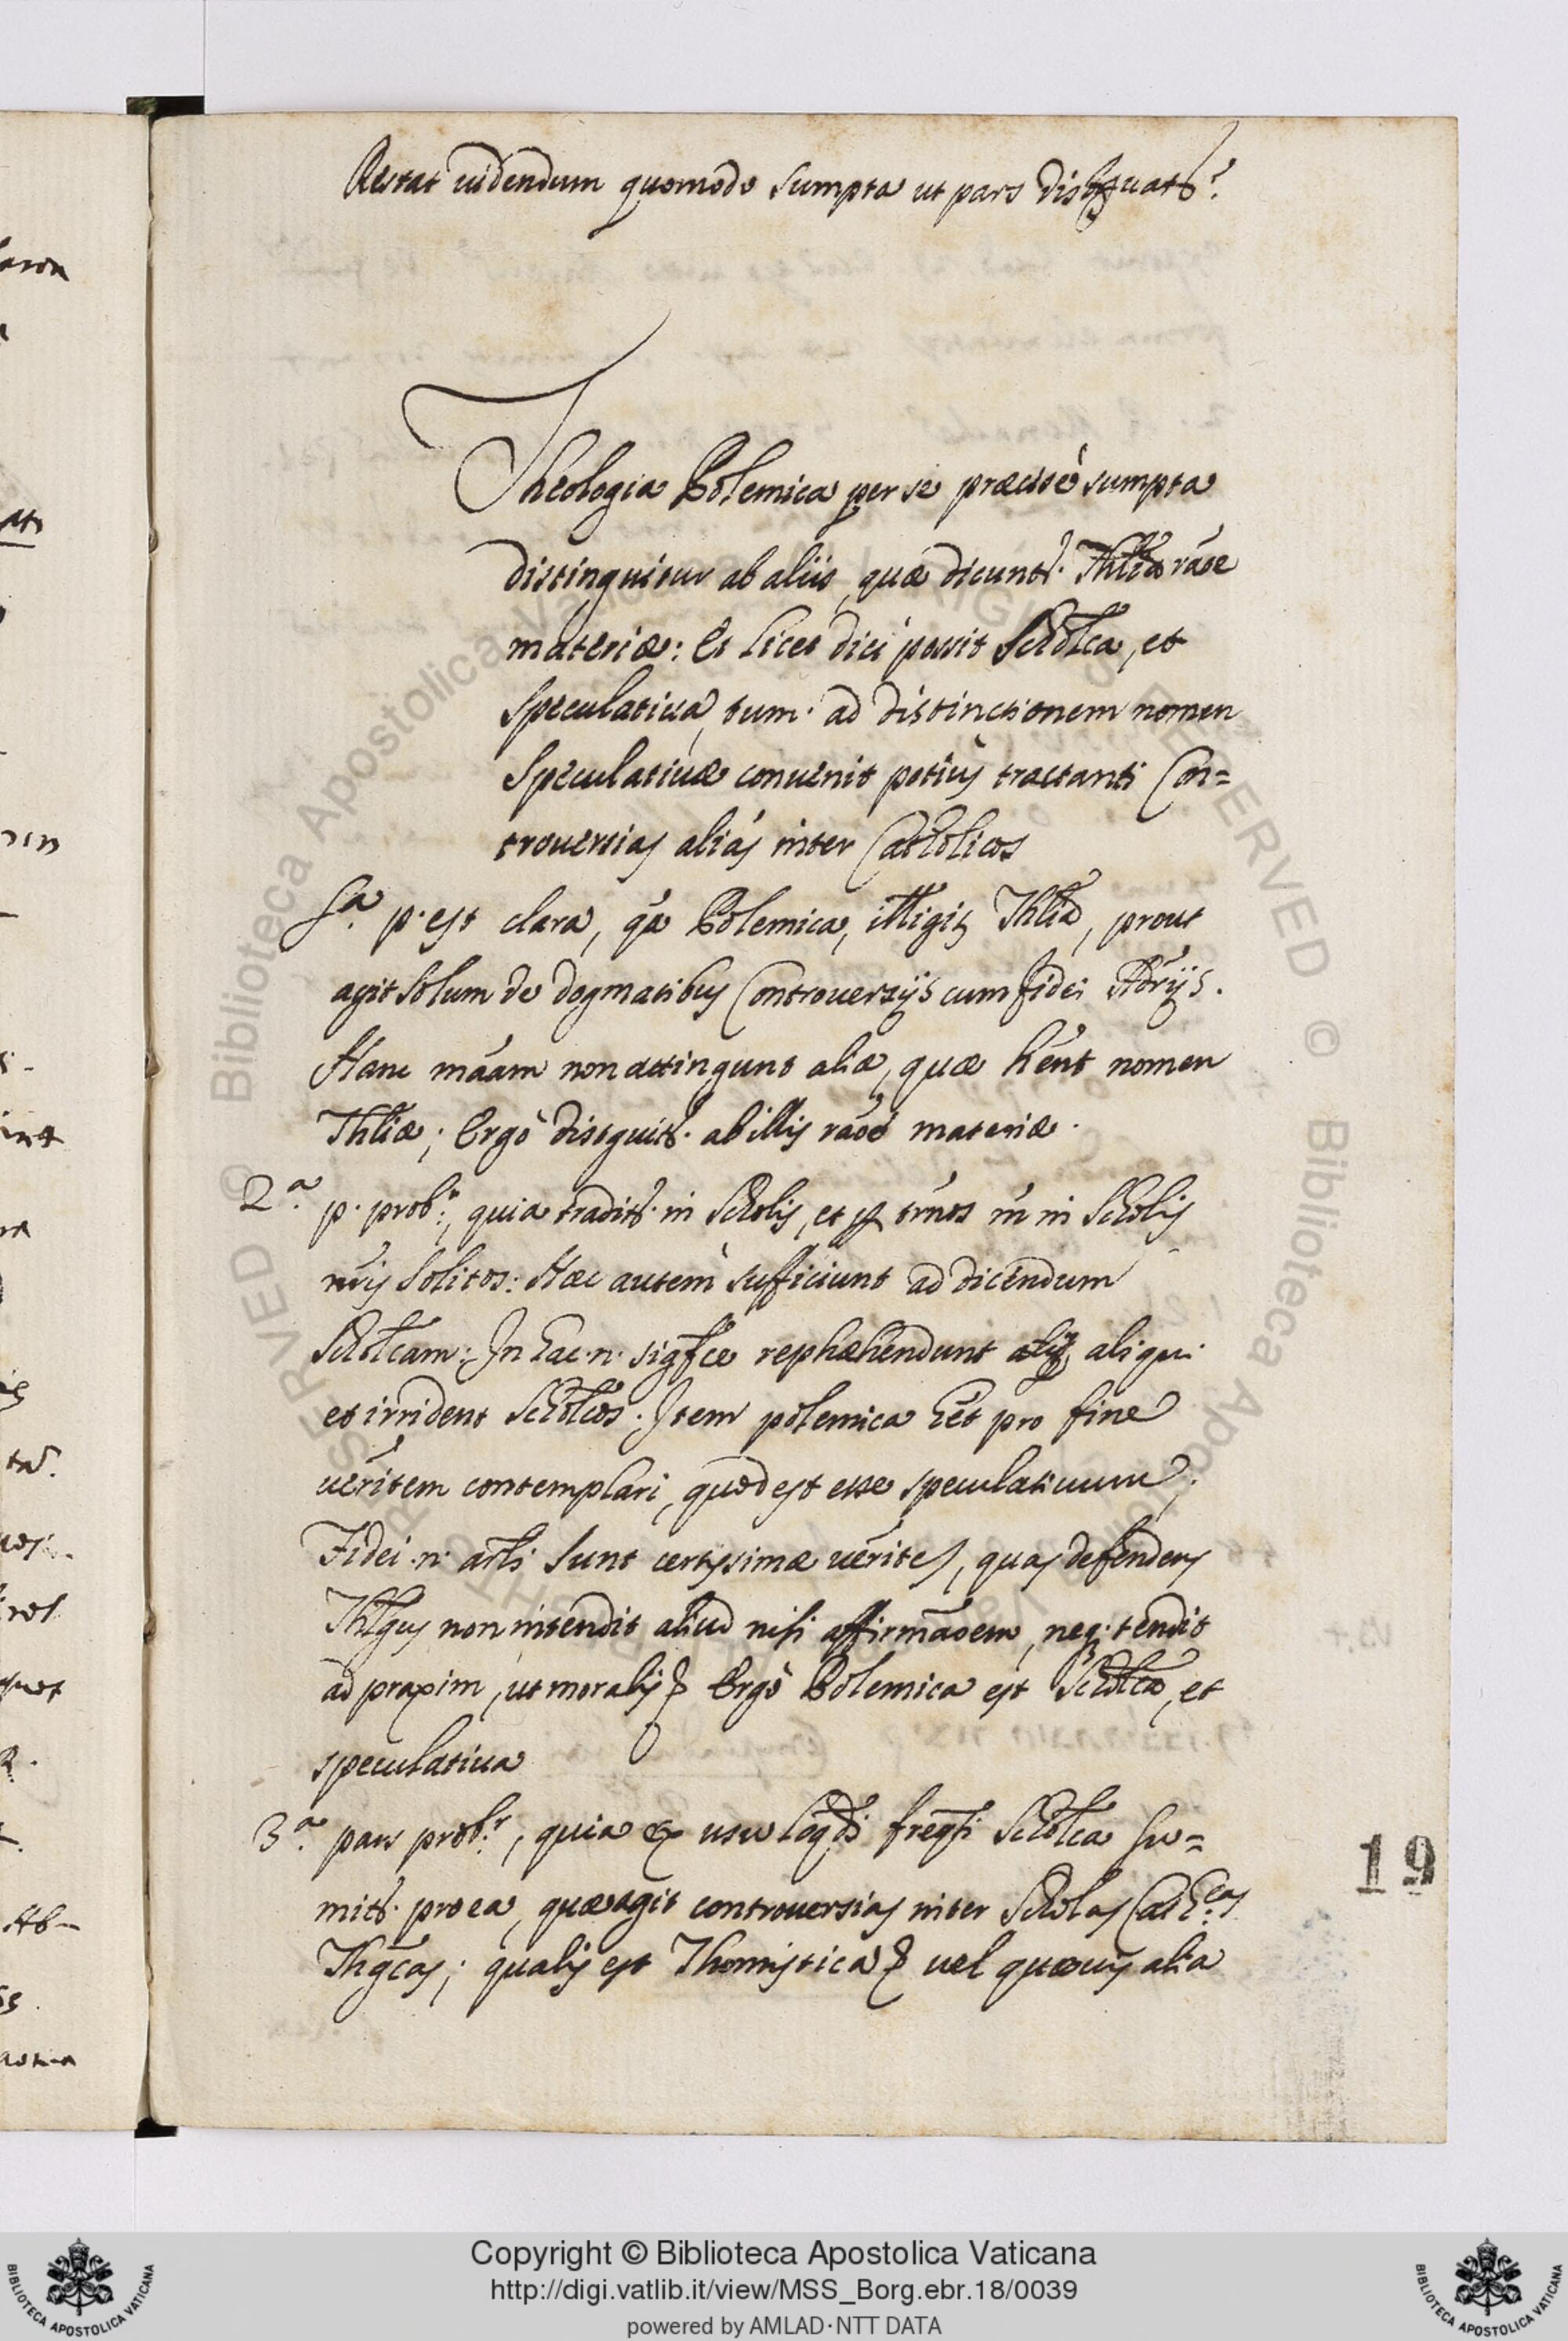 Restat uidendum quomodo sumpta ut pars distguatr.
Theologia Polemica per se præcisè sumpta
distinguitur ab aliis, quæ dicuntr. Thlia rãoe
materiæ: Et licet dici possit Scholca, et
Speculatiua, tum. ad distinctionem nomen
Speculatiuæ conuenit potiùs tractanti Con=
trouersias aliàs inter Catholicos
pa. p. est clara, qa Polemica, illigit Thlia, prout
agit solum de dogmatibus Controuersijs cum fidei Adrijs.
Hanc mãam non attingunt aliæ, quæ hẽnt nomen
Thliæ; Ergò distguitr. ab illis rãoe materiæ.
2.a p. probr., quia traditr. in Scholis, et per trnos in Scholis
nris solitos: Hæc autem sufficiunt ad dicendum
Scholcam: In hac .n. sigfce rephæhendunt aliqui
et irrident Scholcos. Item polemica hẽt pro fine
ueritem contemplari, quod est esse speculatiuum;
Fidei .n. artli sunt certissimæ uerites, quas defendens
Thlgus non intendit aliud nisi affirmãoem, neq. tendit
ad praxim, ut moralis & Ergò Polemica est Scholca, et
speculatiua
3.a pars probr., quia ex usu loqdi freqti Scholca su=
mitr. pro ea, quæ agit controuersias inter Scholas Cathcas
Thgcas; qualis est Thomistica & uel quæuis alia
19
Copyright © Biblioteca Apostolica Vaticana
http://digi.vatlib.it/view/MSS_Borg.ebr.18/0039
powered by AMLAD·NTT DATA
BIBLIOTECA APOSTOLICA VATICANA
BIBLIOTECA APOSTOLICA VATICANA